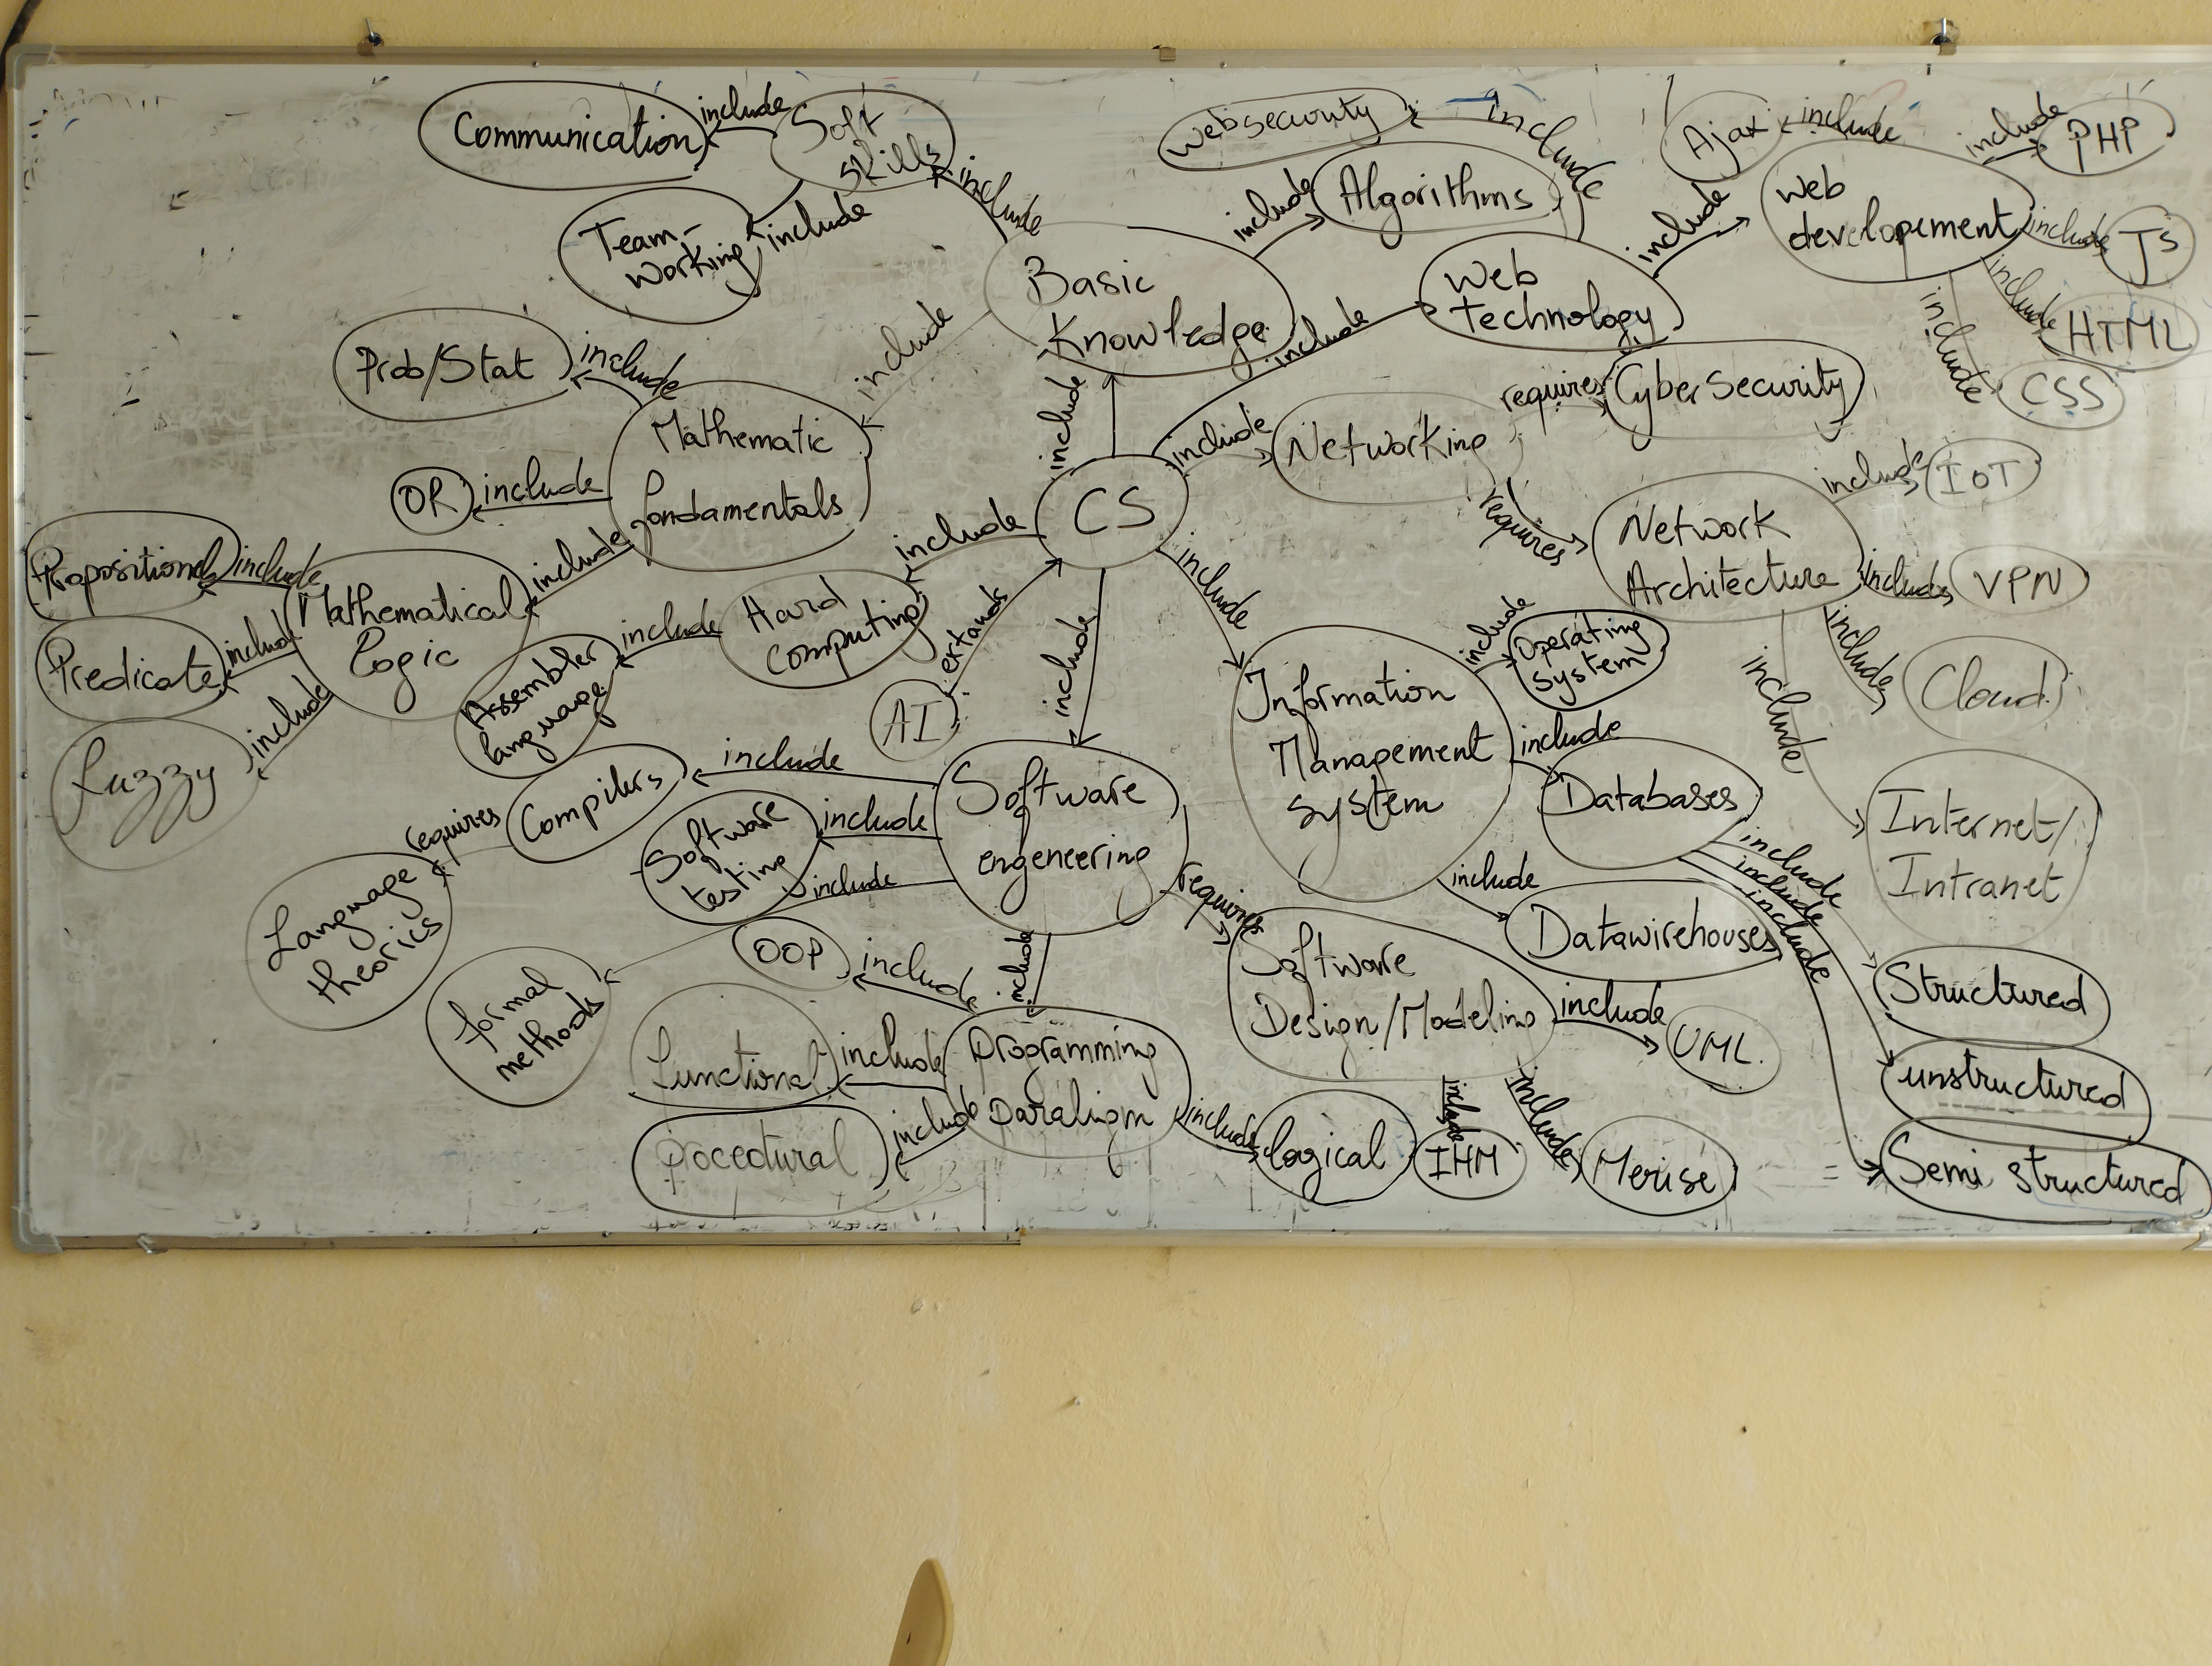 Communication
include
Soft
skills
include
Team-
working
include
Websecurity
include
Algorithms
include
Ajax
include
include
PHP
Web
developement
include
JS
include
HTML
include
CSS
include
Basic
Knowledge
include
Web
technology
include
Prob/Stat
include
include
Mathematic
fondamentals
OR
include
include
Propositional
include
Mathematical
Logic
Predicate
include
Fuzzy
include
include
CS
include
Networking
requires
CyberSecurity
requires
Network
Architecture
include
IoT
include
VPN
include
Cloud
include
Internet/
Intranet
include
Hard
computing
include
Assembler
language
AI
extands
include
include
Information
Management
system
include
Operating
system
include
Databases
include
Datawirehouses
include
include
include
Structured
unstructured
Semi structured
Software
engeneering
include
Compilers
requires
Language
theories
include
Software
testing
include
formal
methods
requires
Software
Design/Modeling
include
UML
include
IHM
include
Merise
include
Programming
include
OOP
include
Functional
include
procedural
include
logical